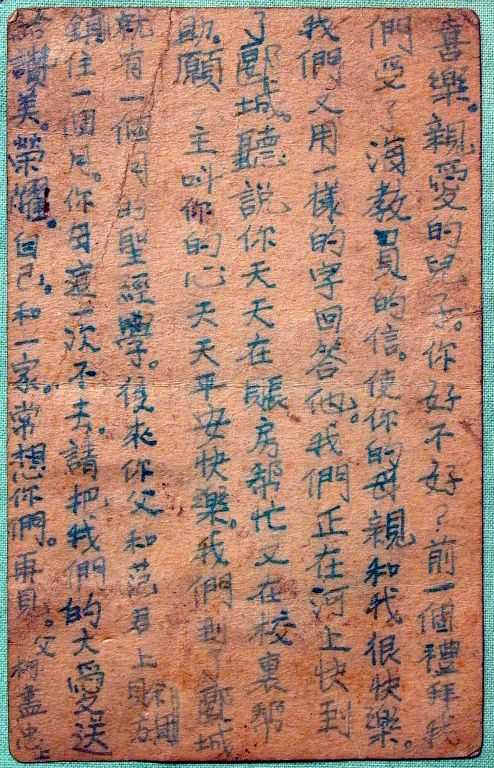 喜樂。親愛的兒子。你好不好？前一個禮拜我
們受了海教員的信。使你的母親和我很快樂。
我們又用一樣的字回答他。我們正在河上快到
了郾城。聽說你天天在賬房幫忙又在校裏幫
助。願主叫你的心天天平安快樂。我們到了郾城
就有一個月的聖經學。後來你父和范君上
鎮住一個月。你母這一次不去。請把我們的大愛送
給讚美。榮耀。自己。和一家。常想你們。再見。父 柯孟忠上